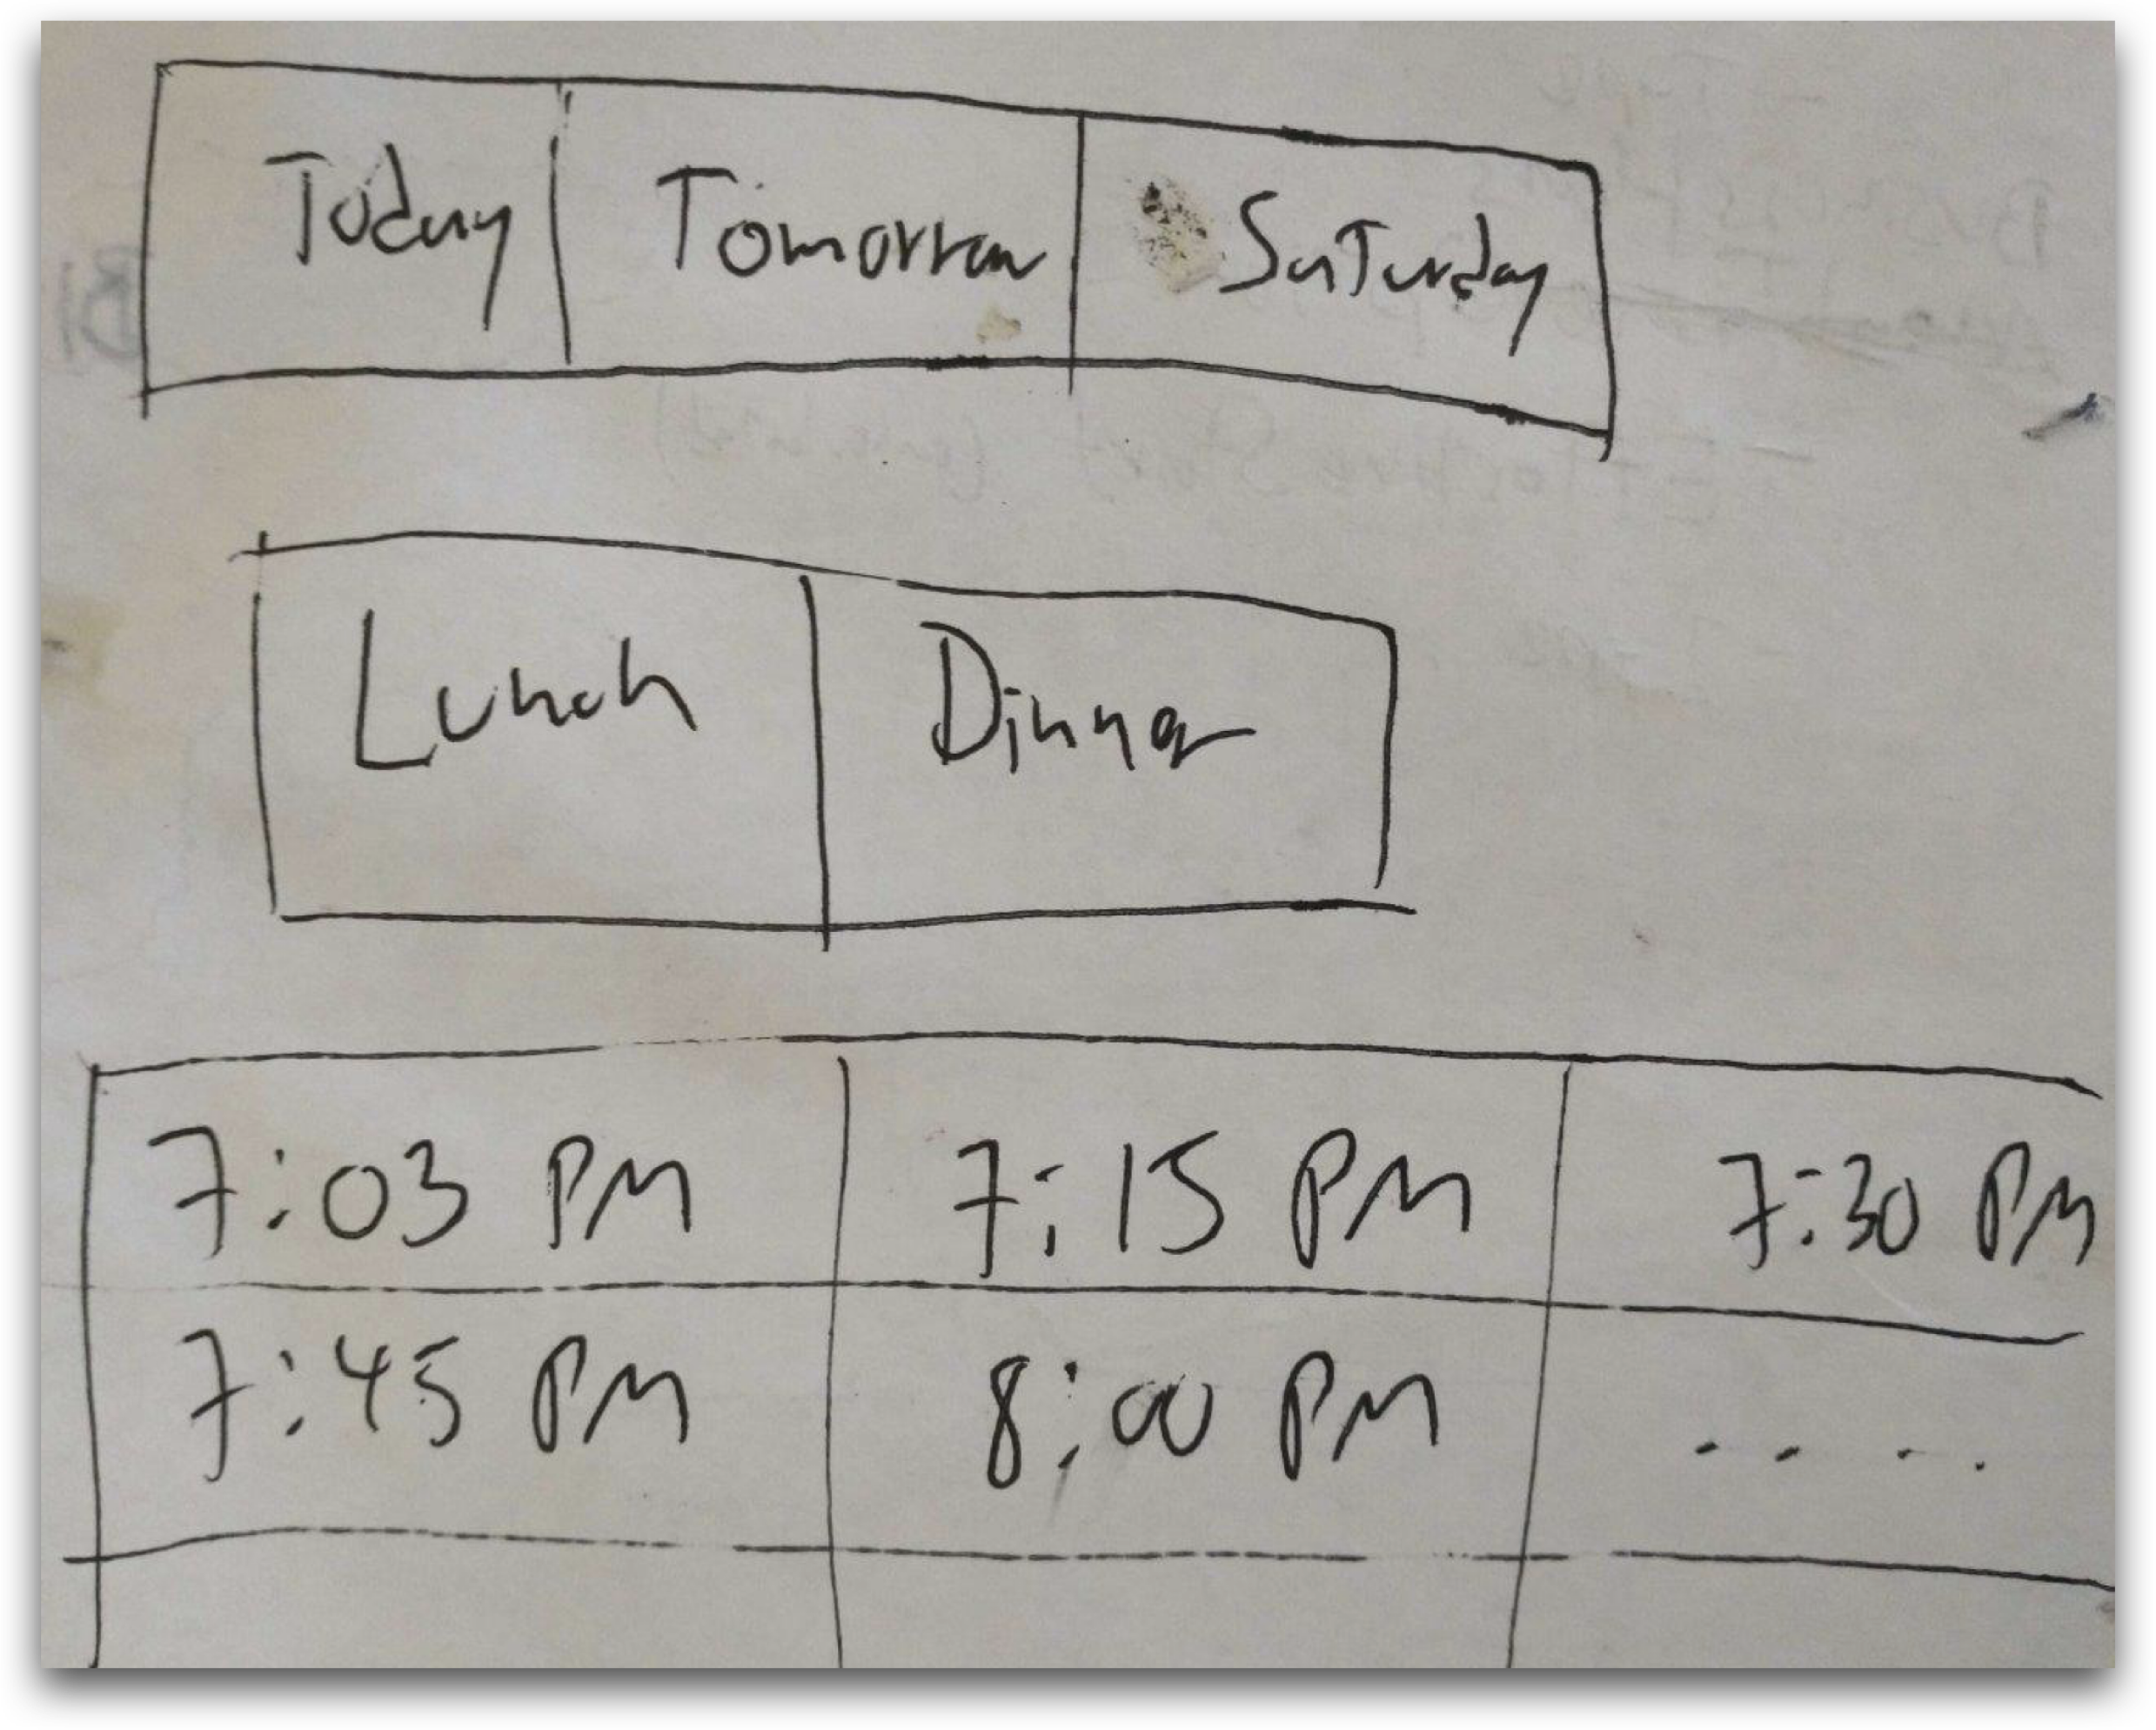 Today Tomorrow Saturday
Lunch Dinner
7:03 PM 7:15 PM 7:30 PM
7:45 PM 8:00 PM ....